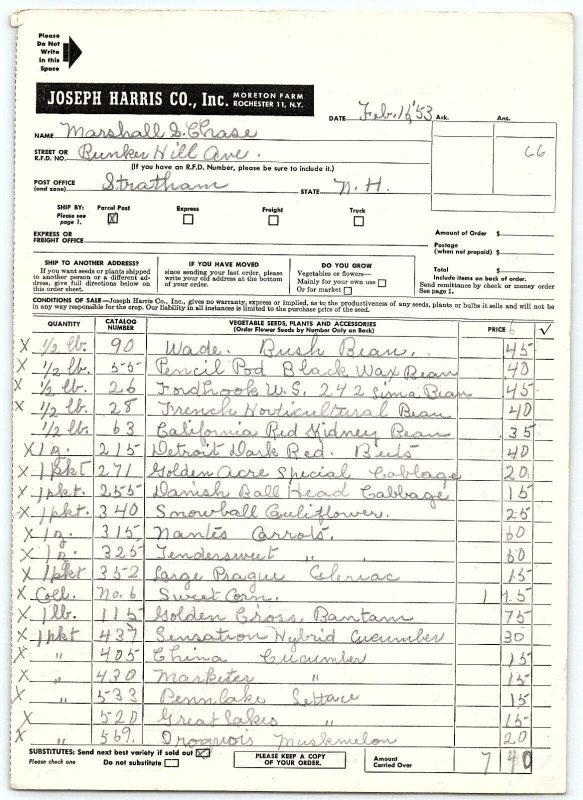 Please
Do Not
Write
in this
Space
JOSEPH HARRIS CO., Inc. MORETON FARM
ROCHESTER 11, N.Y.
DATE Feb. 16, '53 Ack. Ans.
NAME Marshall S. Chase
STREET OR
R.F.D. NO. Bunker Hill Ave. 66
(If you have an R.F.D. Number, please be sure to include it.)
POST OFFICE
(and zone) Stratham STATE N.H.
SHIP BY: Parcel Post Express Freight Truck
Please see
page 1. X
EXPRESS OR
FREIGHT OFFICE
Amount of Order $
Postage
(when not prepaid) $
Total $
Include items on back of order.
Send remittance by check or money order
See page 1.
SHIP TO ANOTHER ADDRESS?
If you want seeds or plants shipped
to another person or a different ad-
dress, give full directions below on
this order sheet.
IF YOU HAVE MOVED
since sending your last order, please
write your old address at the bottom
of your order.
DO YOU GROW
Vegetables or flowers—
Mainly for your own use
Or for market
CONDITIONS OF SALE—Joseph Harris Co., Inc., gives no warranty, express or implied, as to the productiveness of any seeds, plants or bulbs it sells and will not be
in any way responsible for the crop. Our liability in all instances is limited to the purchase price of the seed.
QUANTITY CATALOG NUMBER VEGETABLE SEEDS, PLANTS AND ACCESSORIES
(Order Flower Seeds by Number Only on Back) PRICE 6 √
X 1/2 lb. 90 Wade. Bush Bean. 45
X 1/2 lb. 55 Pencil Pod Black Wax Bean 40
X 1/2 lb. 26 Fordhook U.S. 242 Lima Bean 45
X 1/2 lb. 28 French Horticultural Bean 40
1/2 lb. 63 California Red Kidney Bean 35
X 1 oz. 215 Detroit Dark Red. Beets 40
X 1 pkt 271 Golden Acre Special Cabbage 20
X 1 pkt. 255 Danish Ball Head Cabbage 15
X 1 pkt. 340 Snowball Cauliflower. 25
X 1 oz. 315 Nantes Carrots. 60
X 1 oz. 325 Tendersweet " 60
X 1 pkt 352 Large Prague Celeriac 15
X Coll. No. 6 Sweet Corn. 1
X 1 lb. 115 Golden Cross Bantam 75
X 1 pkt 437 Sensation Hybrid Cucumber 30
X " 405 China Cucumber 15
X " 430 Marketer " 15
X " 533 Pennlake Lettuce 15
X 520 Great Lakes " 15
X " 569. Iroquois Muskmelon 20
SUBSTITUTES: Send next best variety if sold out X
Please check one Do not substitute
PLEASE KEEP A COPY
OF YOUR ORDER.
Amount
Carried Over 7 40